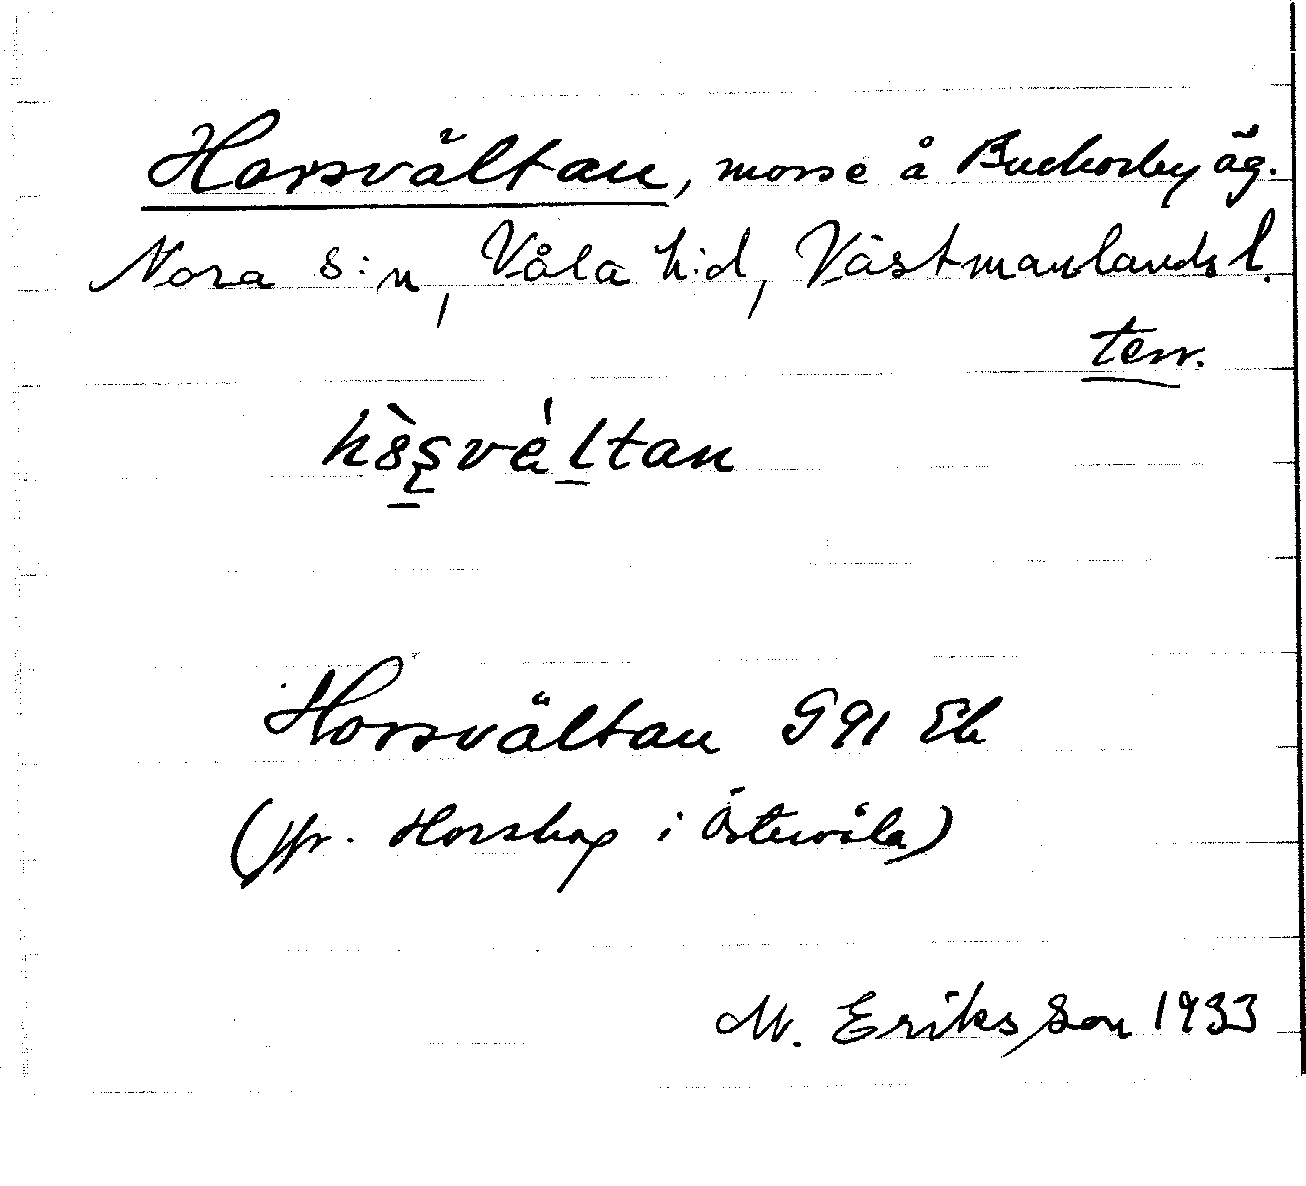 Horsvältan, mosse å Buckarby äg.
Nora s:n, Våla h:d, Västmanlands l.
terr.
Horsvältan G 91 Ek
(jfr. Horskog i Östervåla)
M. Eriksson 1933